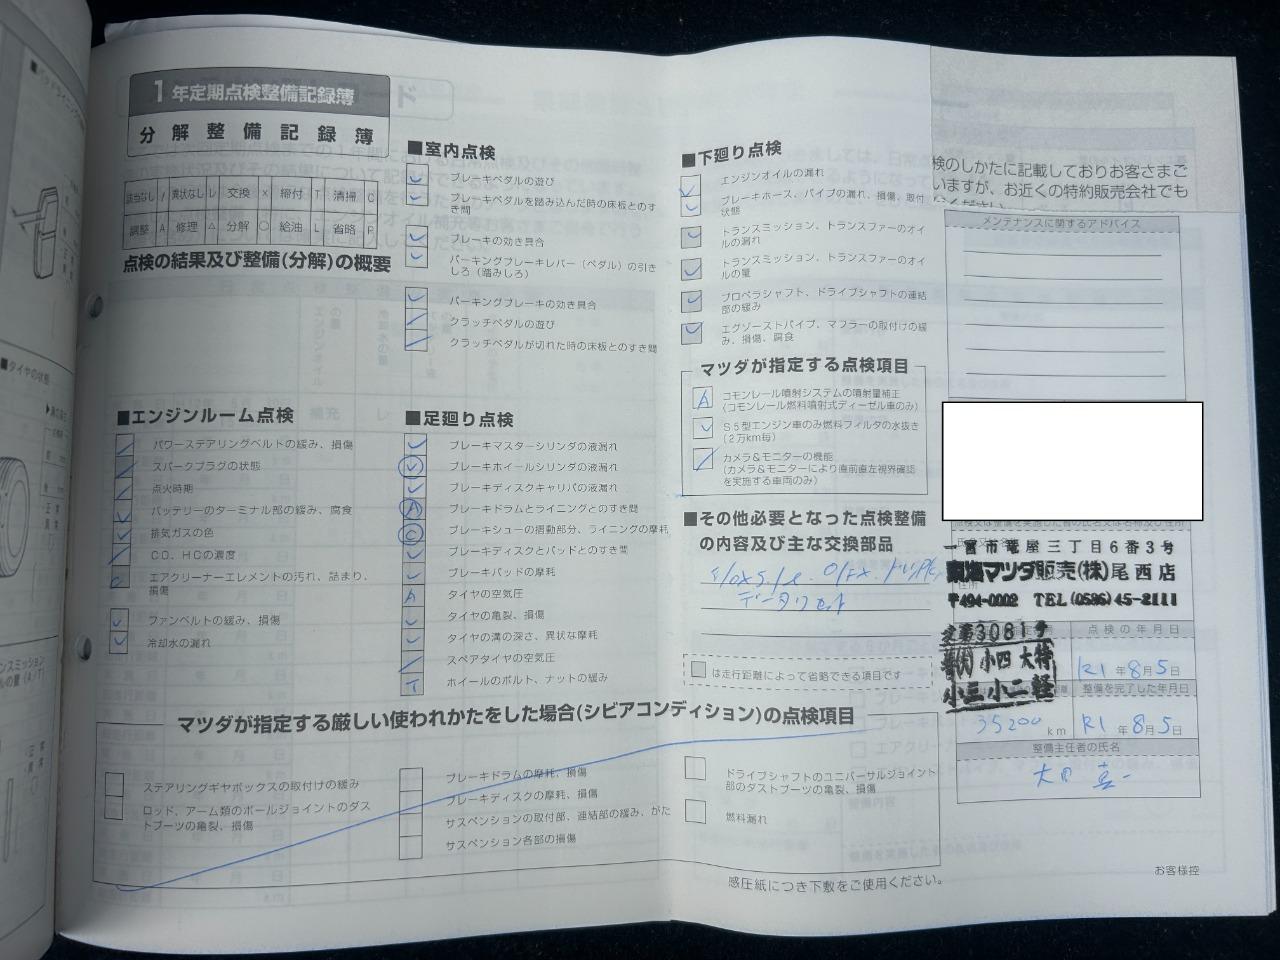 1年定期点検整備記録簿
分解整備記録簿
該当なし / 異状なし レ 交換 × 締付 T 清掃 C
調整 A 修理 △ 分解 ○ 給油 L 省略 P
点検の結果及び整備(分解)の概要
■エンジンルーム点検
パワーステアリングベルトの緩み、損傷
スパークプラグの状態
点火時期
バッテリーのターミナル部の緩み、腐食
排気ガスの色
CO、HCの濃度
エアクリーナーエレメントの汚れ、詰まり、
損傷
ファンベルトの緩み、損傷
冷却水の漏れ
■室内点検
ブレーキペダルの遊び
ブレーキペダルを踏み込んだ時の床板とのす
き間
ブレーキの効き具合
パーキングブレーキレバー（ペダル）の引き
しろ（踏みしろ）
パーキングブレーキの効き具合
クラッチペダルの遊び
クラッチペダルが切れた時の床板とのすき間
■足廻り点検
ブレーキマスターシリンダの液漏れ
ブレーキホイールシリンダの液漏れ
ブレーキディスクキャリパの液漏れ
ブレーキドラムとライニングとのすき間
ブレーキシューの摺動部分、ライニングの摩耗
ブレーキディスクとパッドとのすき間
ブレーキパッドの摩耗
タイヤの空気圧
タイヤの亀裂、損傷
タイヤの溝の深さ、異状な摩耗
スペアタイヤの空気圧
ホイールのボルト、ナットの緩み
■下廻り点検
エンジンオイルの漏れ
ブレーキホース、パイプの漏れ、損傷、取付
状態
トランスミッション、トランスファーのオイ
ルの漏れ
トランスミッション、トランスファーのオイ
ルの量
プロペラシャフト、ドライブシャフトの連結
部の緩み
エグゾーストパイプ、マフラーの取付けの緩
み、損傷、腐食
マツダが指定する点検項目
コモンレール噴射システムの噴射量補正
(コモンレール燃料噴射式ディーゼル車のみ)
S5型エンジン車のみ燃料フィルタの水抜き
(2万km毎)
カメラ&モニターの機能
(カメラ&モニターにより直前直左視界確認
を実施する車両のみ)
■その他必要となった点検整備
の内容及び主な交換部品
データリセット
は走行距離によって省略できる項目です
マツダが指定する厳しい使われかたをした場合(シビアコンディション)の点検項目
ステアリングギヤボックスの取付けの緩み
ロッド、アーム類のボールジョイントのダス
トブーツの亀裂、損傷
ブレーキドラムの摩耗、損傷
ブレーキディスクの摩耗、損傷
サスペンションの取付部、連結部の緩み、がた
サスペンション各部の損傷
ドライブシャフトのユニバーサルジョイント
部のダストブーツの亀裂、損傷
燃料漏れ
感圧紙につき下敷をご使用ください。
検のしかたに記載しておりお客さまご
いますが、お近くの特約販売会社でも
メンテナンスに関するアドバイス
点検又は整備を実施した者の氏名又は名称及び住所
一宮市竜屋三丁目6番3号
東海マツダ販売(株)尾西店
〒494-0002 TEL(0586)45-2111
愛第3081号
普大 小四 大特
小三 小二 軽
点検の年月日
R1年8月5日
整備を完了した年月日
35200 km R1年8月5日
整備主任者の氏名
お客様控